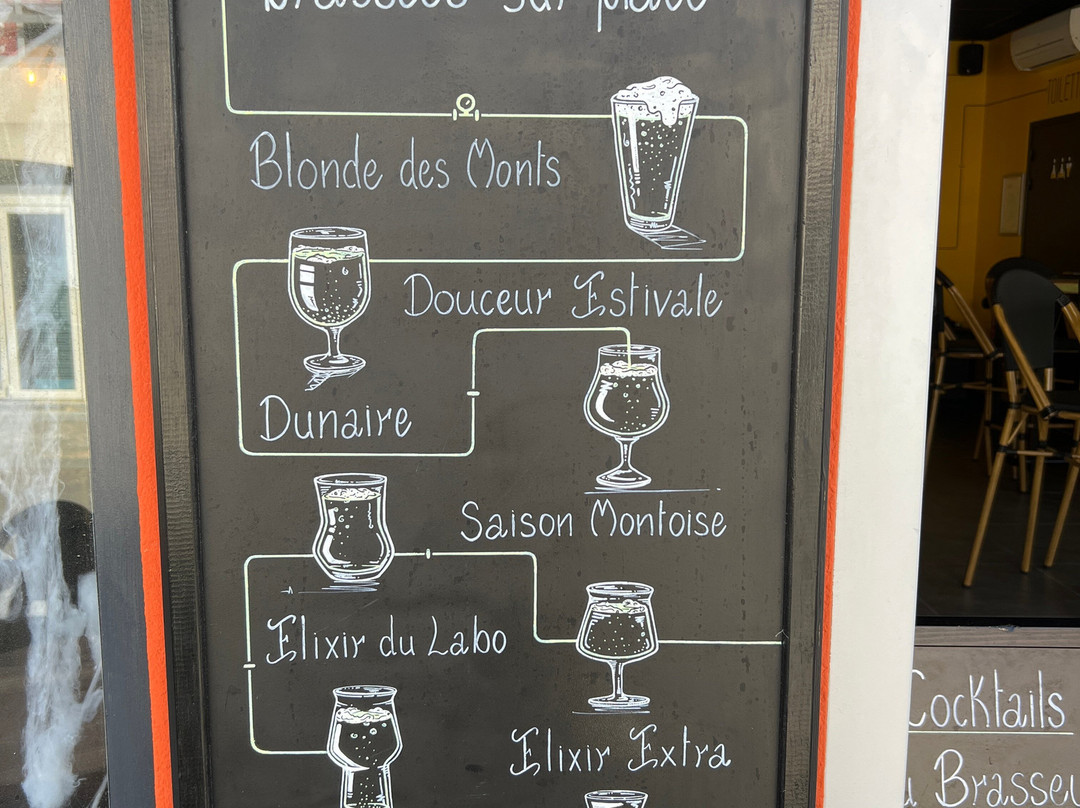 brassées sur place
Blonde des Monts
Douceur Estivale
Dunaire
Saison Montoise
Elixir du Labo
Elixir Extra
TOILETT
Cocktails
Brasseu